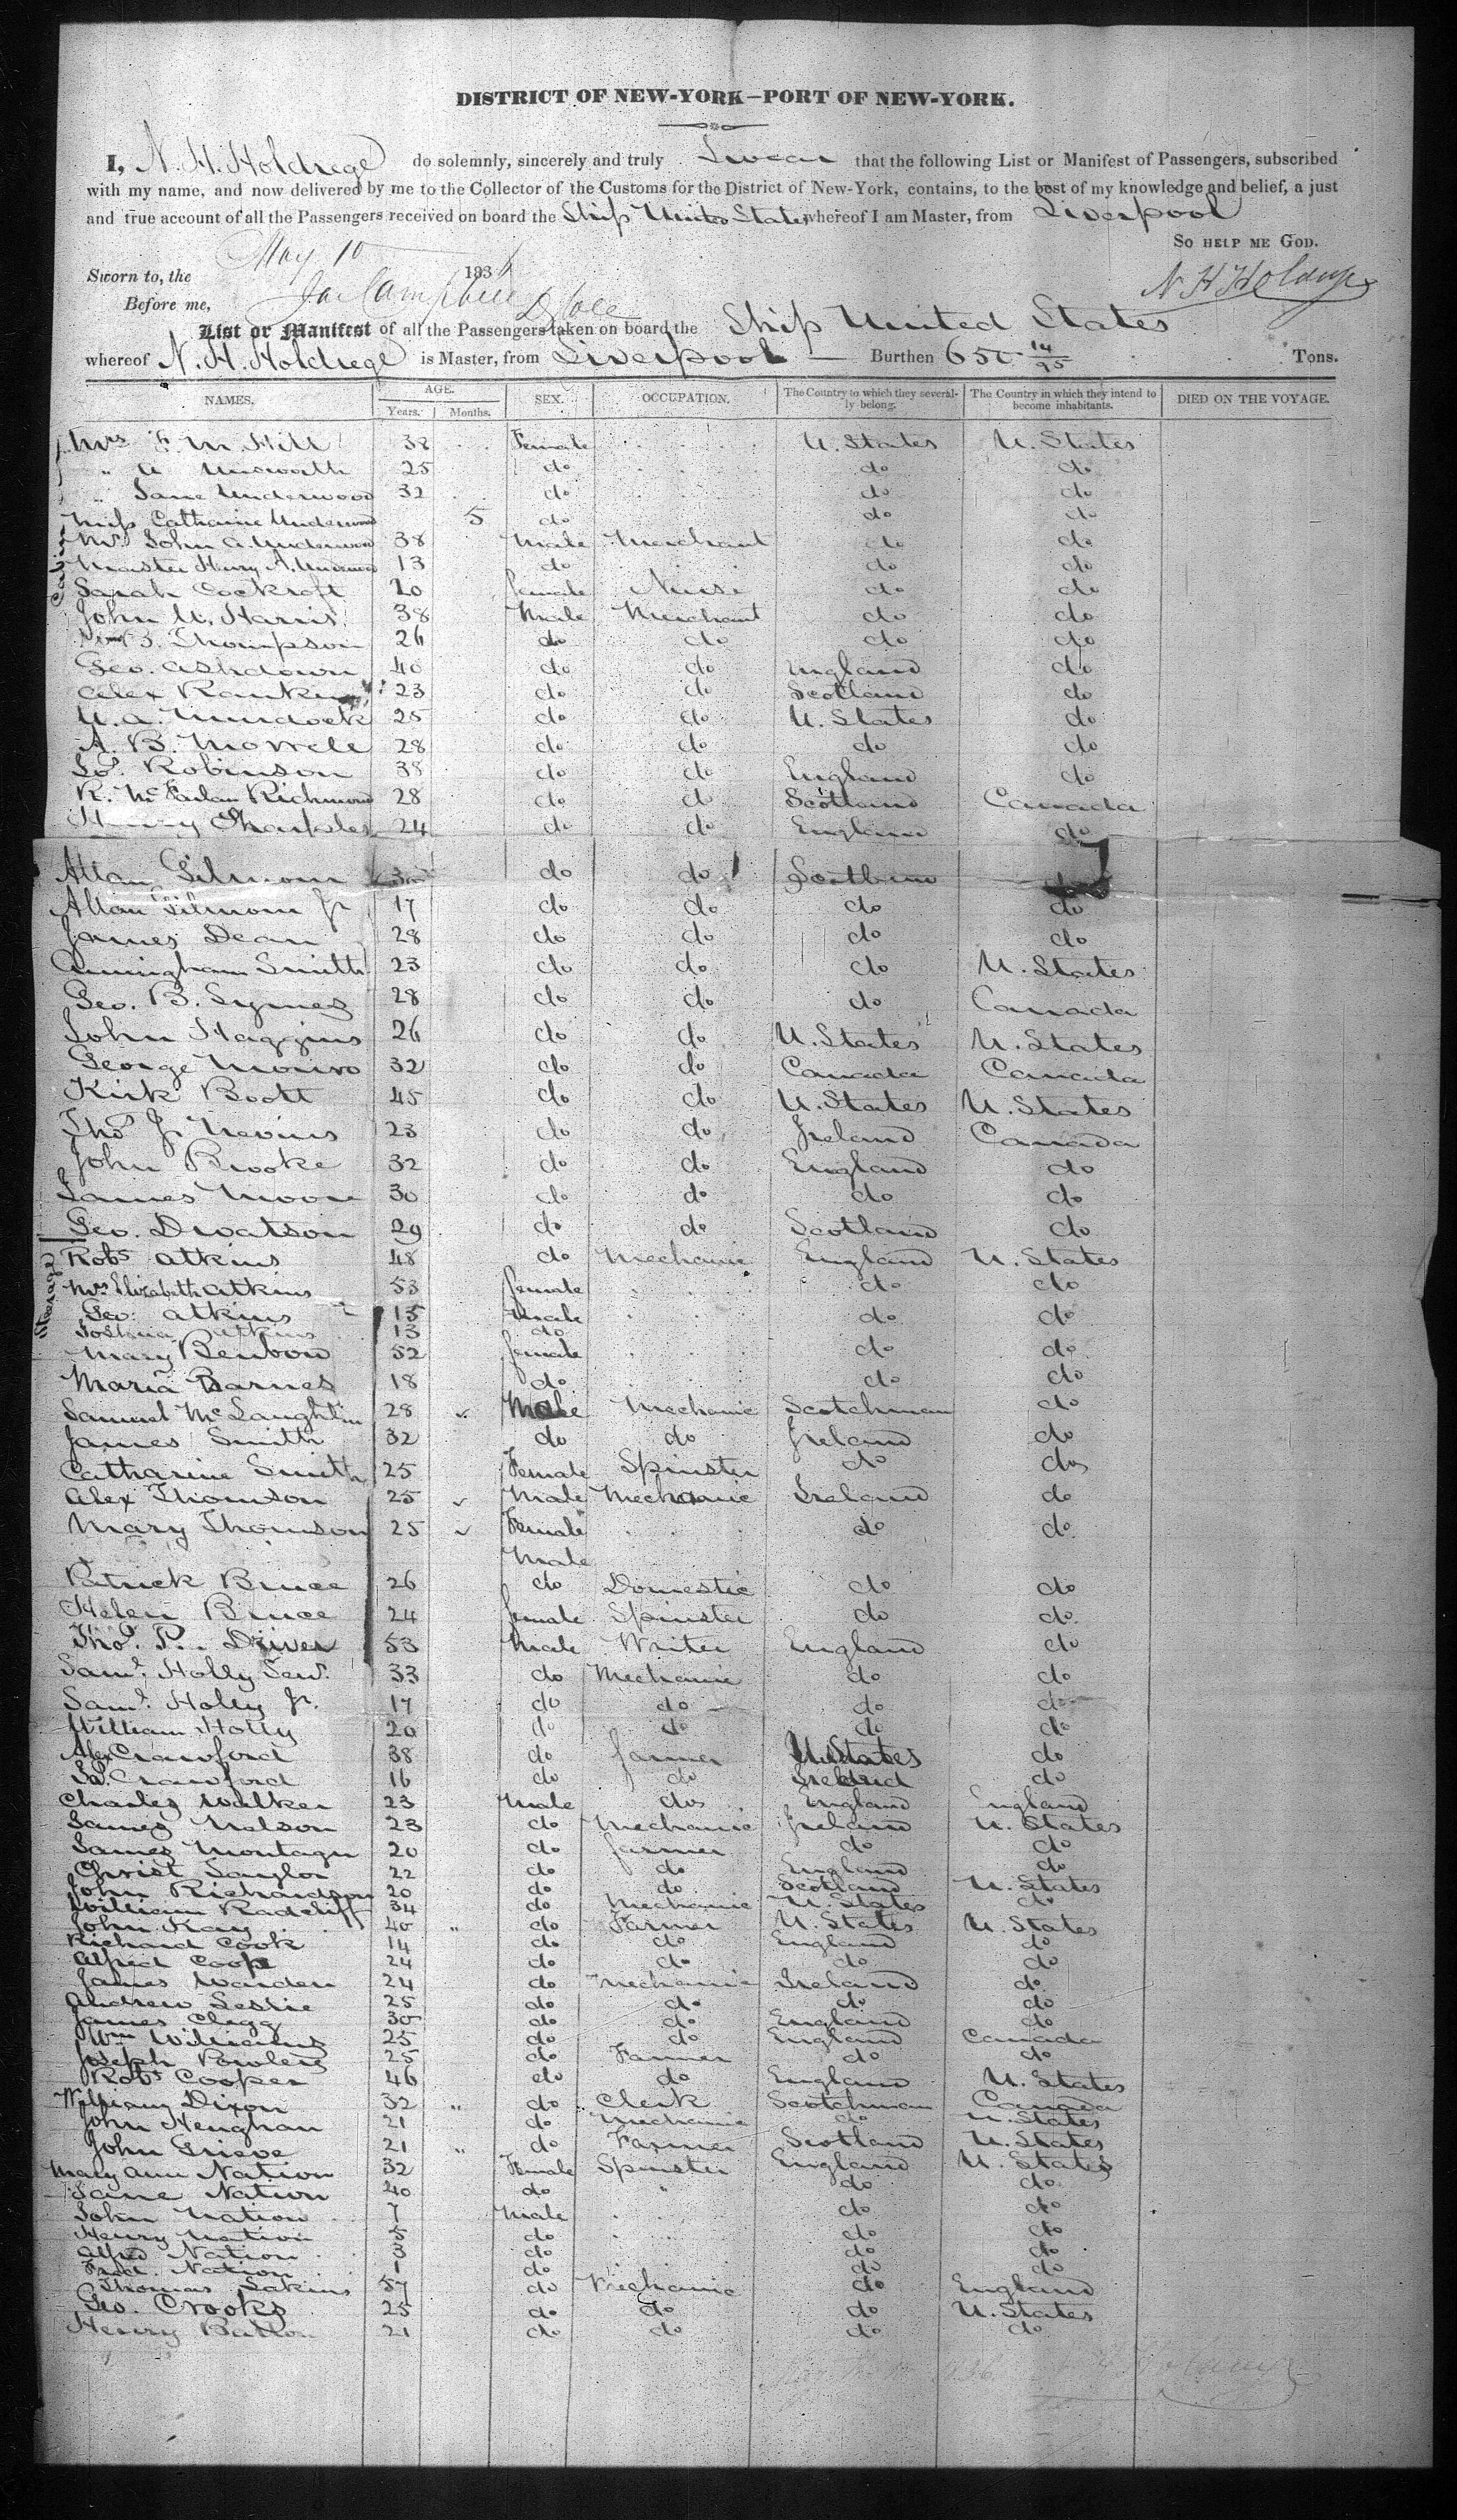 DISTRICT OF NEW-YORK—PORT OF NEW-YORK.
I, N. H. Holdrege do solemnly, sincerely and truly Swear that the following List or Manifest of Passengers, subscribed
with my name, and now delivered by me to the Collector of the Customs for the District of New-York, contains, to the best of my knowledge and belief, a just
and true account of all the Passengers received on board the Ship United States whereof I am Master, from Liverpool
SO HELP ME GOD.
Sworn to, the May 10 1836
Before me,
List or Manifest of all the Passengers taken on board the Ship United States
whereof N. H. Holdrege is Master, from Liverpool — Burthen 650 14/95 Tons.
NAMES. AGE. Years. Months. SEX. OCCUPATION. The Country to which they severally belong. The Country in which they intend to become inhabitants. DIED ON THE VOYAGE.
Cabin
Mrs F. M. Hill 38 Female U. States U. States
" 25 do do do
" Jane Underwood 32 do do do
Miss Catharine Underwood 5 do do do
Mr John A. Underwood 38 Male Merchant do do
Master Henry A. Underwood 13 do do do
Sarah Cockroft 20 female Nurse do do
John W. Harris 38 Male Merchant do do
Thompson 26 do do do do
Geo. Ashdown 40 do do England do
Alex Rankin 23 do do Scotland do
U. A. Murdock 25 do do U. States do
A. B. Morrele 28 do do do do
Robinson 38 do do England do
R. McFarlan Richmond 28 do do Scotland Canada
Henry Sharples 24 do do England do
Allan Gilmour do do do
Allan Gilmour Jr 17 do do do do
James Dean 28 do do do do
Cunningham Smith 23 do do do U. States
Geo. B. Symes 28 do do do Canada
John Haggins 26 do do U. States U. States
George Monro 32 do do Canada Canada
Kirk Boott 45 do do U. States U. States
Thos J. Nevins 23 do do Ireland Canada
John Brooke 32 do do England do
James Moore 30 do do do do
Geo. D Watson 29 do do Scotland do
Steerage
Robt Atkins 48 do Mechanic England U. States
Mrs Elizabeth Atkins 53 female do do
Geo. Atkins 15 Male do do
Joshua Atkins 13 do
Mary Benbow 52 female do do
Maria Barnes 18 do do do
Samuel McLaughlin 28 Male Mechanic Scotchman do
James Smith 32 do do Ireland do
Catharine Smith 25 Female Spinster do do
Alex Thomson 25 Male Mechanic Ireland do
Mary Thomson 25 Female do do
Male
Patrick Bruce 26 do Domestic do do
Helen Bruce 24 female Spinster do do
Thos. P. Driver 53 Male Writer England do
Saml. Holly Senr. 33 do Mechanic do do
Saml. Holly Jr. 17 do do do do
William Holly 20 do do do do
Alex Crawford 38 do farmer U. States do
Crawford 16 do do Ireland do
Charles Walker 23 Male do England England
James Nelson 23 do Mechanic Ireland U. States
James Montagu 20 do farmer do do
Christ Saylor 22 do do England do
John Richardson 20 do do Scotland U. States
William Radcliff 34 do Mechanic U. States do
John Kay 40 " do Farmer U. States U. States
Richard Cook 14 do do England do
Alfred Cook 24 do do do do
James Warden 24 do Mechanic Ireland do
Andrew Leslie 25 do do do do
James Clegg 30 do do England do
Wm Williams 25 do do England Canada
Joseph Powling 25 do Farmer do do
Robt Cooper 46 do do England U. States
William Dixon 32 " do Clerk Scotchman Canada
John Henghan 21 do Mechanic do U. States
John Grieve 21 " do Farmer Scotland U. States
Mary Ann Nation 32 Female Spinster England U. States
Jane Nation 40 do " do do
John Nation 7 Male do do
Henry Nation 5 do do do
Alfred Nation 3 do do do
Fred. Nation 1 do do do
Thomas Lakins 57 do Mechanic do England
Geo. Crooks 25 do do do U. States
Henry 21 do do do do